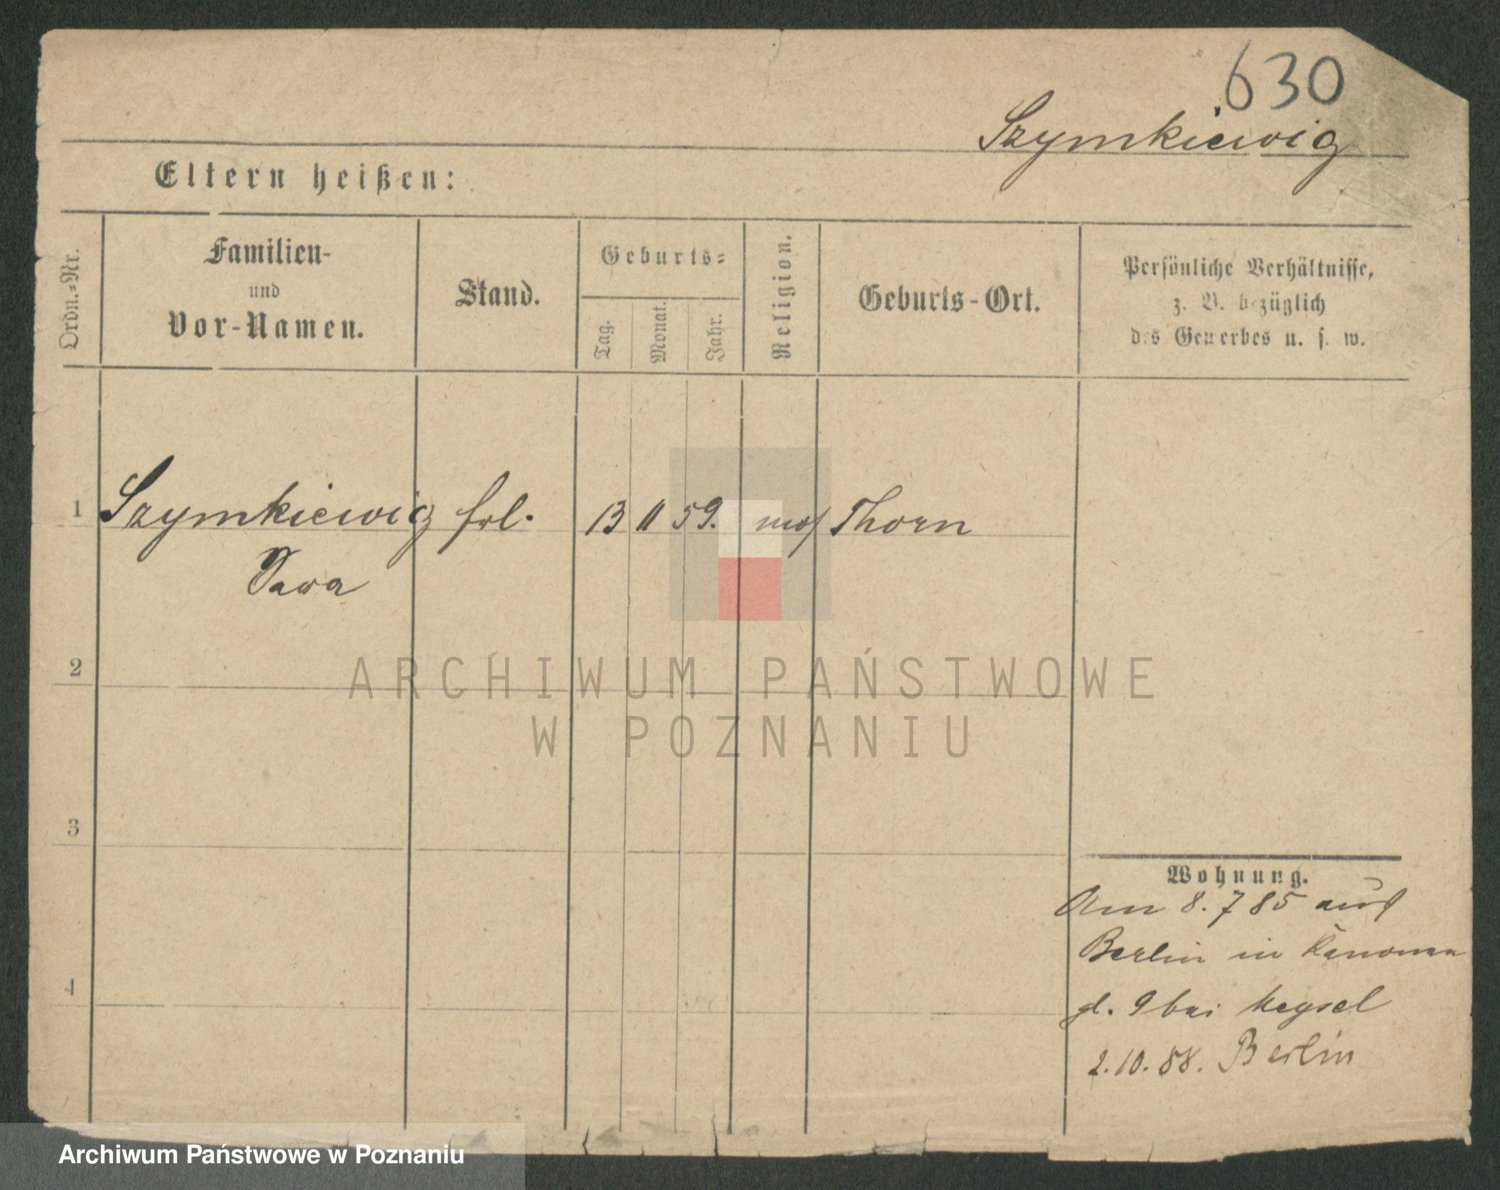 630
Szymkiewig
Eltern heißen:
Ordn.=Nr.
Familien-
und
Vor-Namen.
Stand.
Geburts=
Tag.
Monat.
Jahr.
Religion.
Geburts-Ort.
Persönliche Verhältnisse,
z. B. bezüglich
des Gewerbes u. s. w.
1 Szymkiewig frl. 13 11 59. mos Thorn
2
3
4
Wohnung.
Am 8. 7 85 aus
Berlin in Kanonen
pl. 9 bei Meysel
2.10.88. Berlin
ARCHIWUM PAŃSTWOWE
W POZNANIU
Archiwum Państwowe w Poznaniu